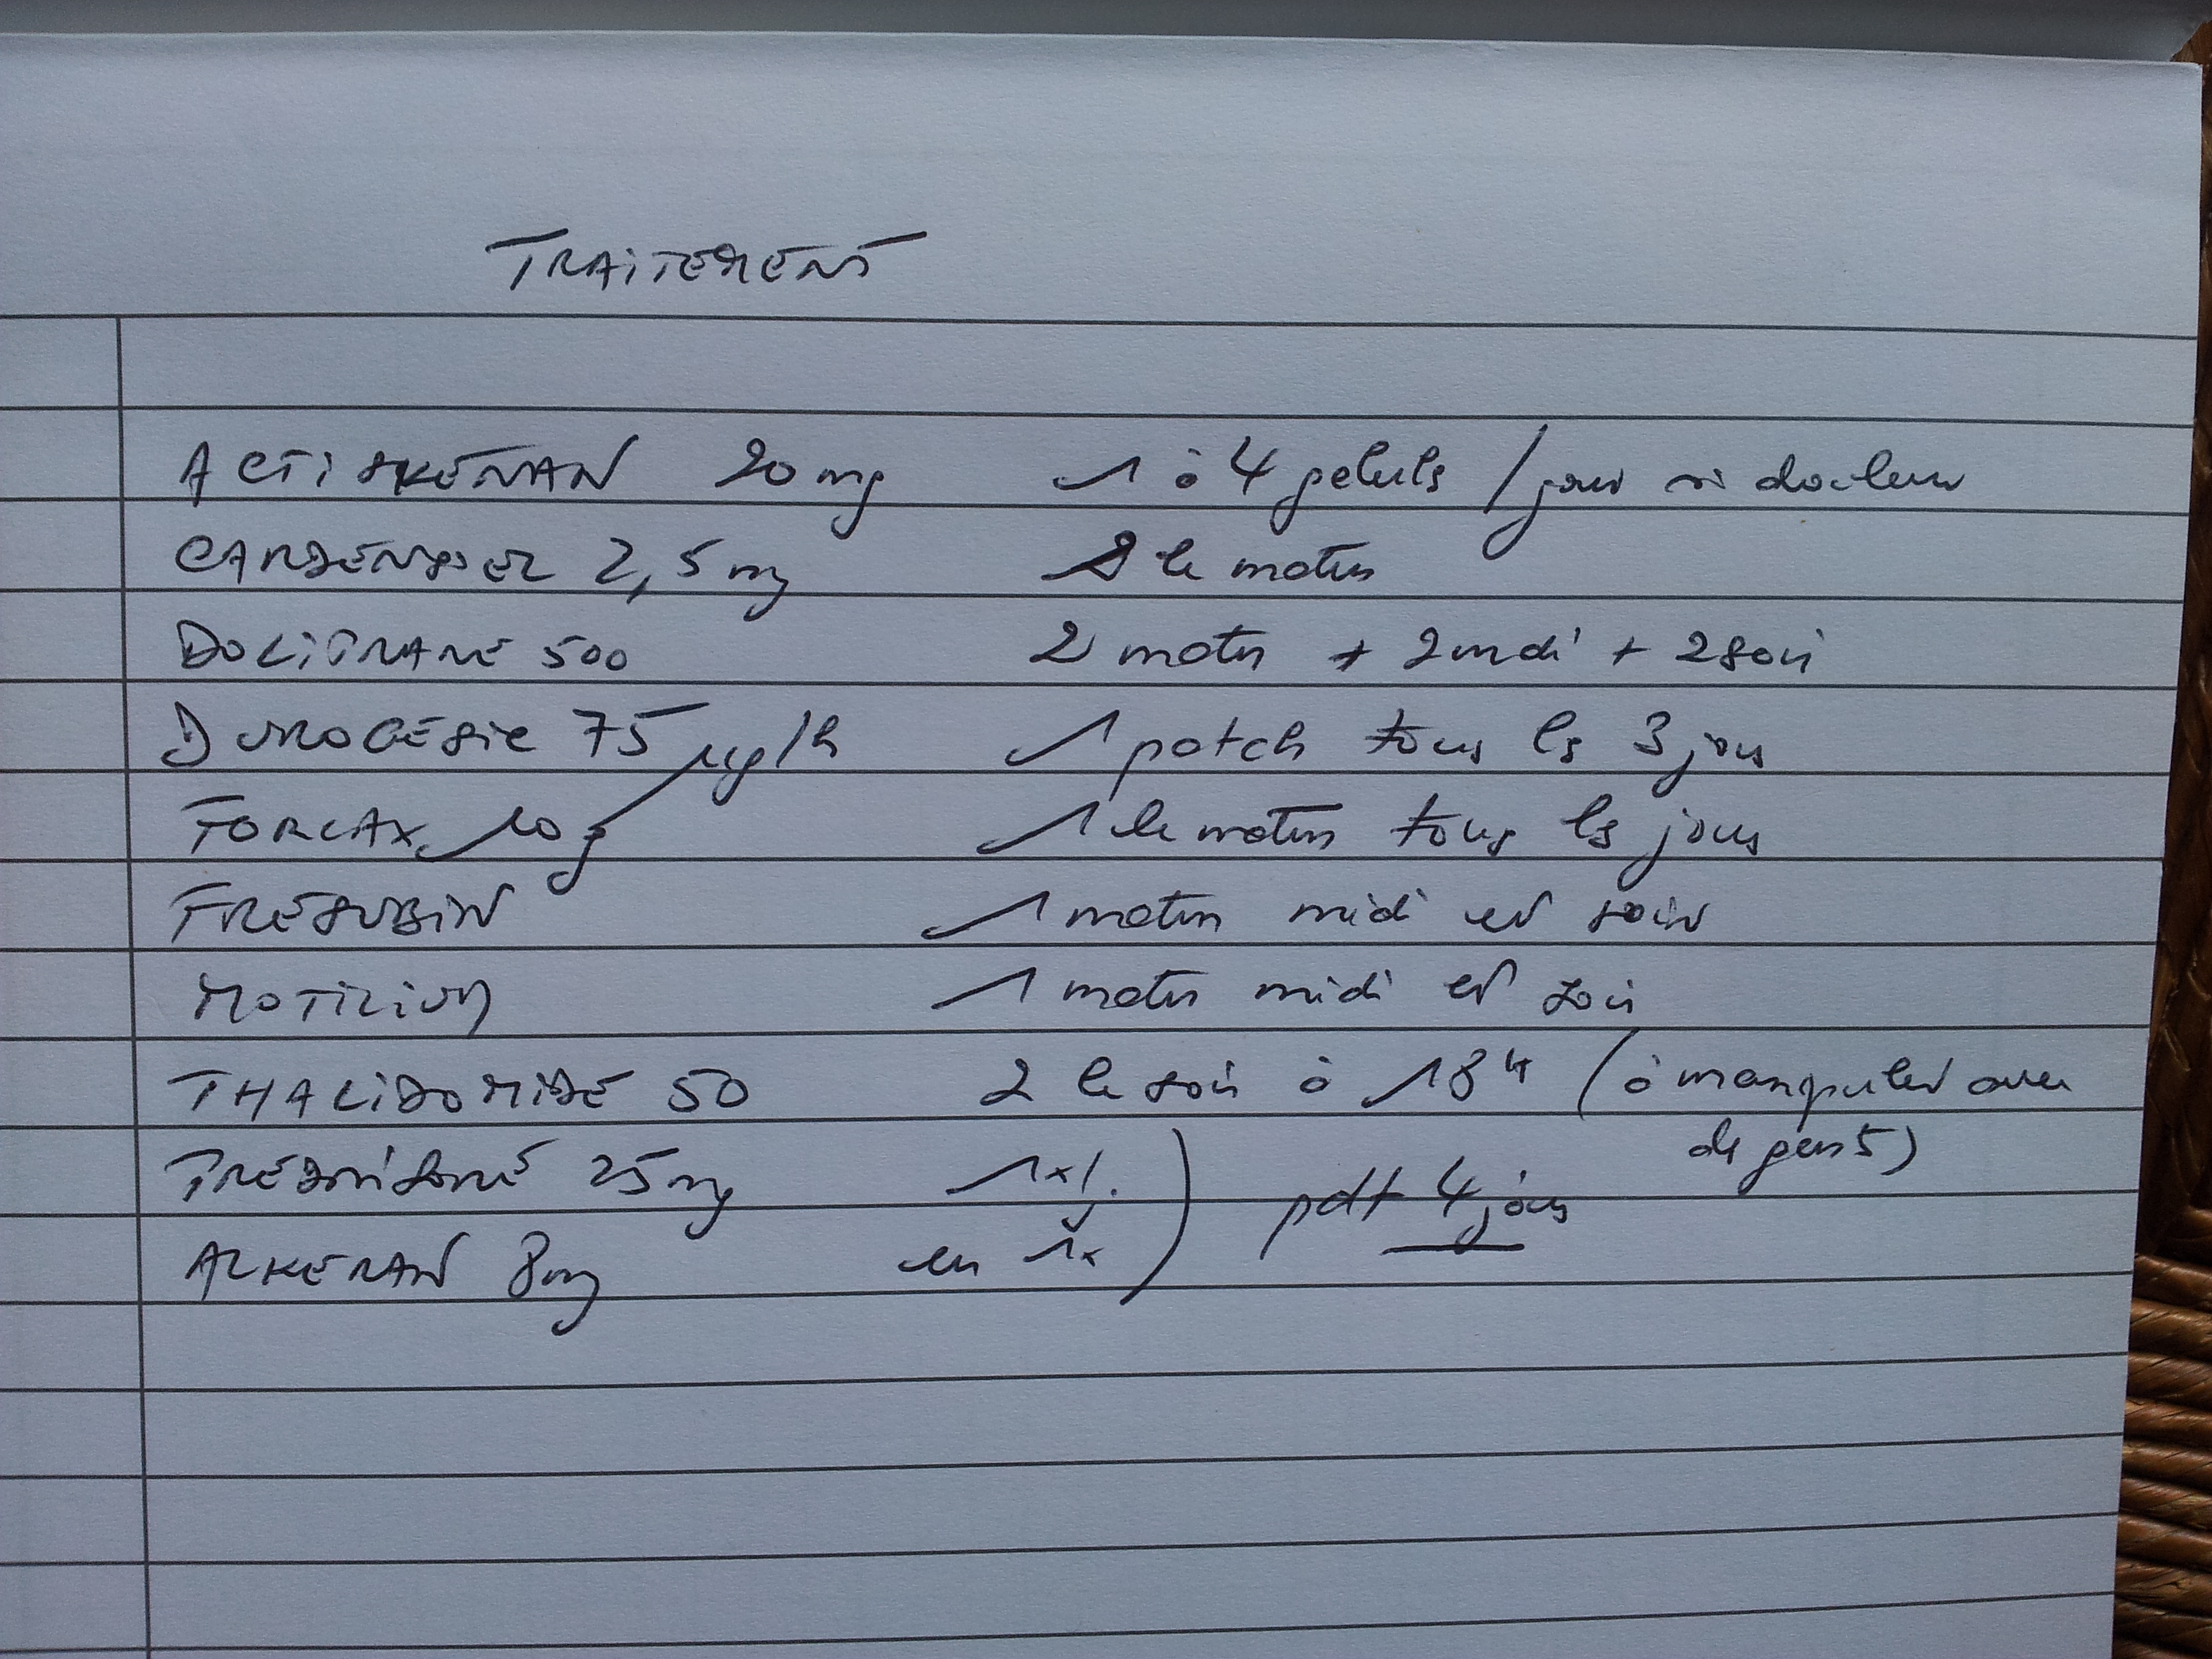 TRAITEMENT
ACTISKENAN 20 mg 1 à 4 gelules / jour si douleur
CARDENSIEL 2,5 mg 2 le matin
DOLIPRANE 500 2 matin + 2 midi + 2 soir
DUROGESIC 75 µg/h 1 patch tous les 3 jours
FORLAX 10 g 1 le matin tous les jours
FRESUBIN 1 matin midi et soir
MOTILIUM 1 matin midi et soir
THALIDOMIDE 50 2 le soir à 18H (à manipuler avec
de gants)
PREDNISONE 25 mg 1x/j. ) pdt 4 jours
ALKERAN 8mg en 1x